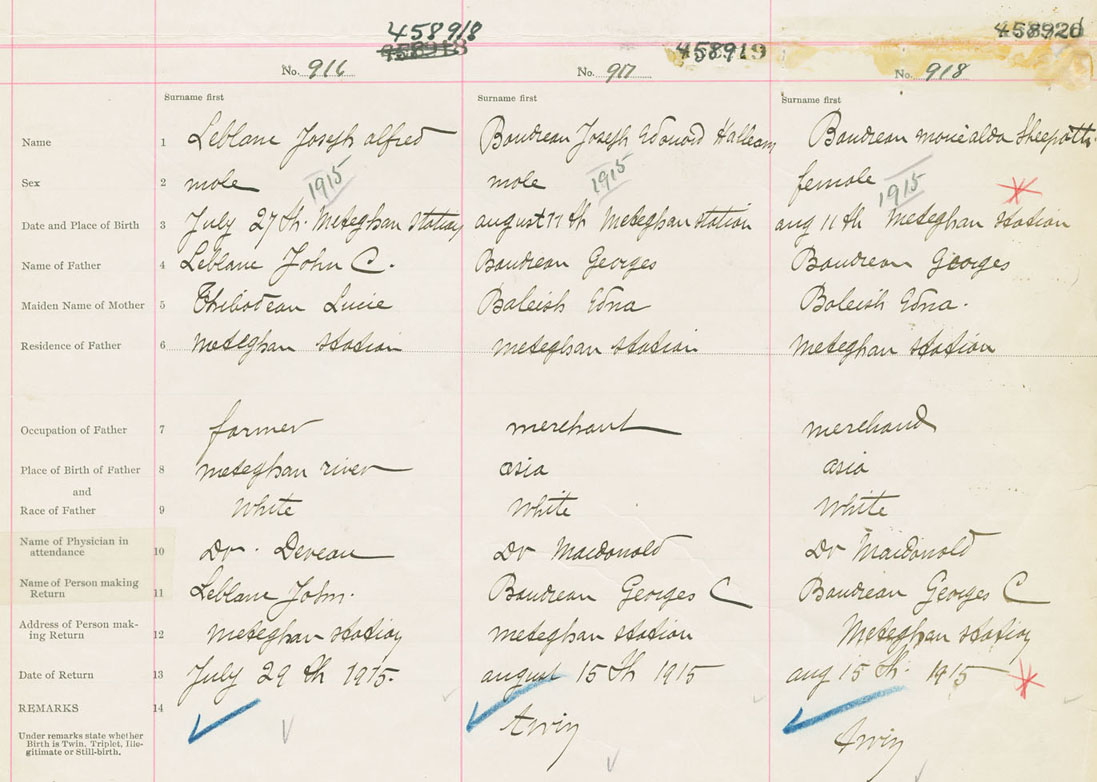 458918 458919 458920
458918
No. 916 No. 917 No. 918
Surname first Surname first Surname first
Name 1 Leblanc Joseph alfred Boudreau Joseph Edouard Boudreau
Sex 2 male 1915 male 1915 female 1915
Date and Place of Birth 3 July 27 th. Meteghan station august 11 th Meteghan station aug 11 th Meteghan station
Name of Father 4 Leblanc John C. Boudreau Georges Boudreau Georges
Maiden Name of Mother 5 Thibodeau Lucie Boleish Edna Boleish Edna.
Residence of Father 6 meteghan station meteghan station meteghan station
Occupation of Father 7 farmer merchant merchand
Place of Birth of Father 8 meteghan river asia asia
and
Race of Father 9 White White White
Name of Physician in
attendance 10 Dr. Deveau Dr Macdonald Dr Macdonald
Name of Person making
Return 11 Leblanc John. Boudreau Georges C Boudreau Georges C
Address of Person mak-
ing Return 12 meteghan station meteghan station Meteghan station
Date of Return 13 July 29 th 1915. august 15 th 1915 aug 15 th. 1915
REMARKS 14
Under remarks state whether
Birth is Twin, Triplet, Ille-
gitimate or Still-birth.